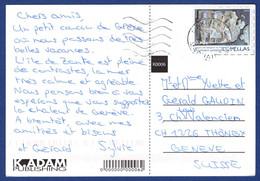 Chers amis,
Un petit coucou de Grèce
où nous passons de très
belles vacances.
L'île de Zante est pleine
de contrastes, la mer
très calme et agréable.
Nous pensons bien à vous
espérons que vous supportez
la chaleur de Genève.
A bientôt, avec nos
amitiés et bisous
et Gérard Sylvie
K.ADAM
PUBLISHING
K0006
HELLAS
M et Mme Yvette et
Gérald GAUDIN
3 ch Valencien
CH 1226 THÔNEX
GENEVE
SUISSE